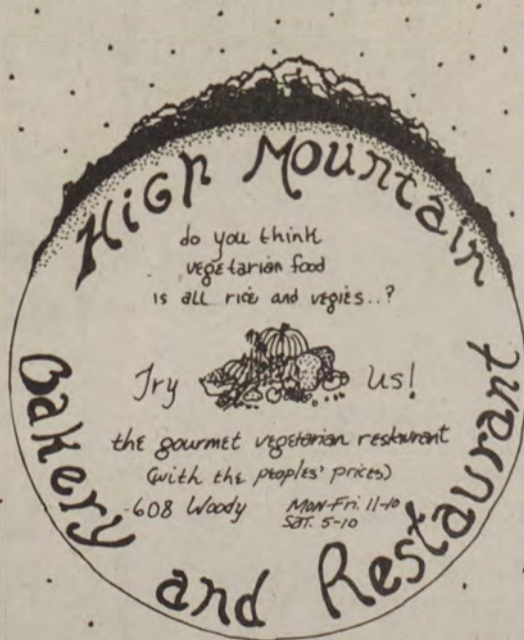 High Mountain
do you think
vegetarian food
is all rice and vegies..?
Try Us!
the gourmet vegetarian restaurant
(with the peoples' prices)
608 Woody Mon-Fri. 11-10
Sat. 5-10
Bakery and Restaurant